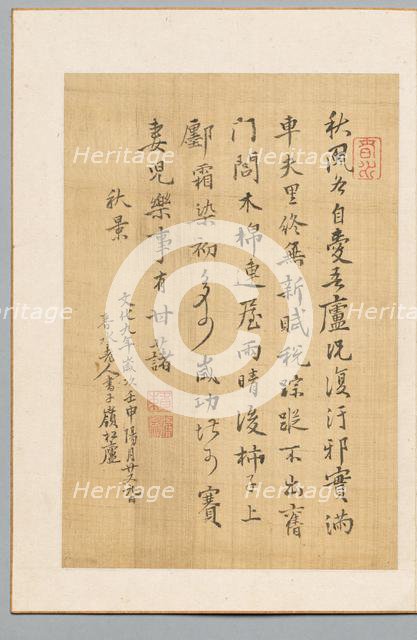 秋風各自愛吾廬況復汙邪實滿
車夫里終無新賦税踪蹤不出舊
門閭木棉連屋雨晴後柿子上
鄽霜染初多少歳功皆可賽
妻兒樂事有甘藷
秋景
文化九年歳次壬申陽月廿又
春水老人書于嶺松廬
Heritage Images
Heritage Images
Heritage Images
Heritage Images
Heritage Images
Heritage Images